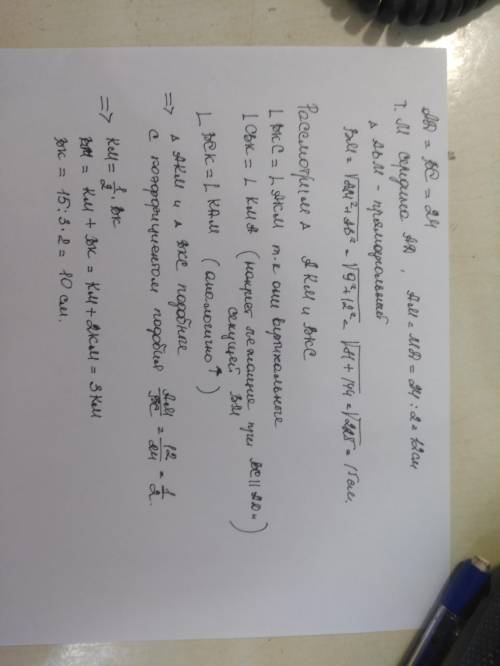 AD = BC = 24
т. М середина AD, AM = MD = 24 : 2 = 12 см
△ ABM - прямоугольный
BM = √AM² + AB² = √9² + 12² = √81 + 144 = √225 = 15 см.
Рассмотрим △ AKM и BKC
∠ BKC = ∠ AKM т.к они вертикальные
∠ CBK = ∠ KMA (накрест лежащие при BC || AD и
секущей BM)
∠ BCK = ∠ KAM (аналогично ↑)
=> △ AKM и △ BKC подобные
с коэффициентом подобия AM/BC = 12/24 = 1/2.
=> KM = 1/2 · BK
BM = KM + BK = KM + 2KM = 3KM
BK = 15 : 3 · 2 = 10 см.